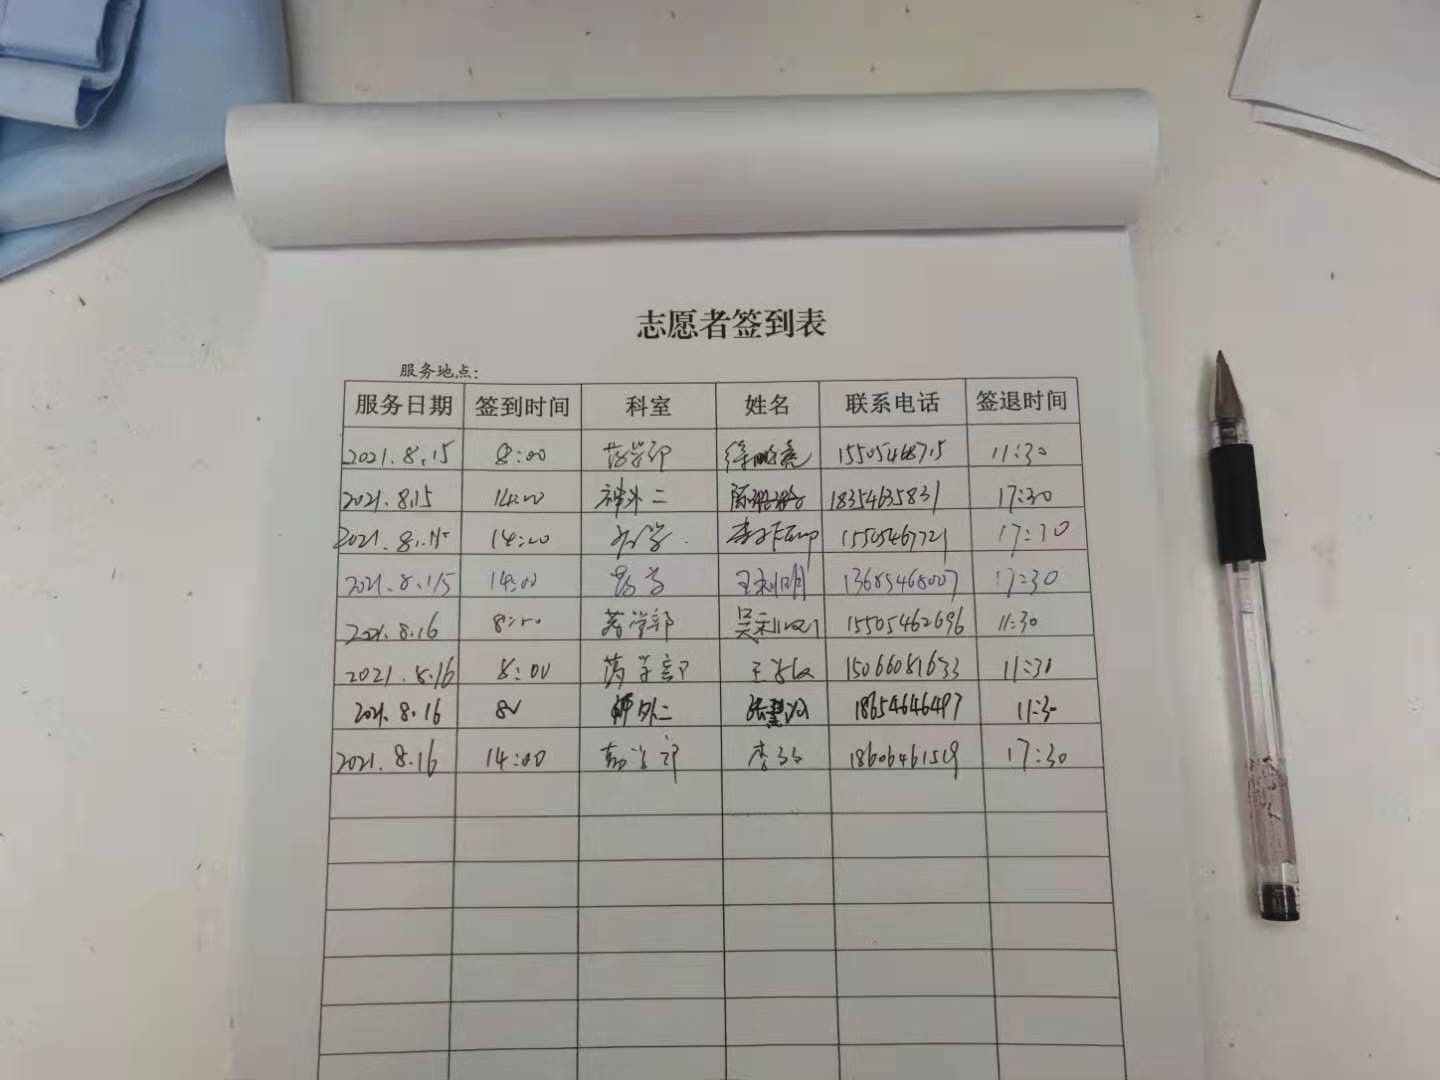 志愿者签到表
服务地点:
服务日期 签到时间 科室 姓名 联系电话 签退时间
2021.8.15 8:00 药学部 徐鹏亮 11:30
2021.8.15 14:00 神外二 18354635831 17:30
2021.8.15 14:00 药学 15505467721 17:30
2021.8.15 14:00 药学 王利明 13685468007 17:30
2021.8.16 8:00 药学部 15505462696 11:30
2021.8.16 8:00 药学部 15066081633 11:30
2021.8.16 神外二 18654646497 11:30
2021.8.16 14:00 药学部 18606461519 17:30